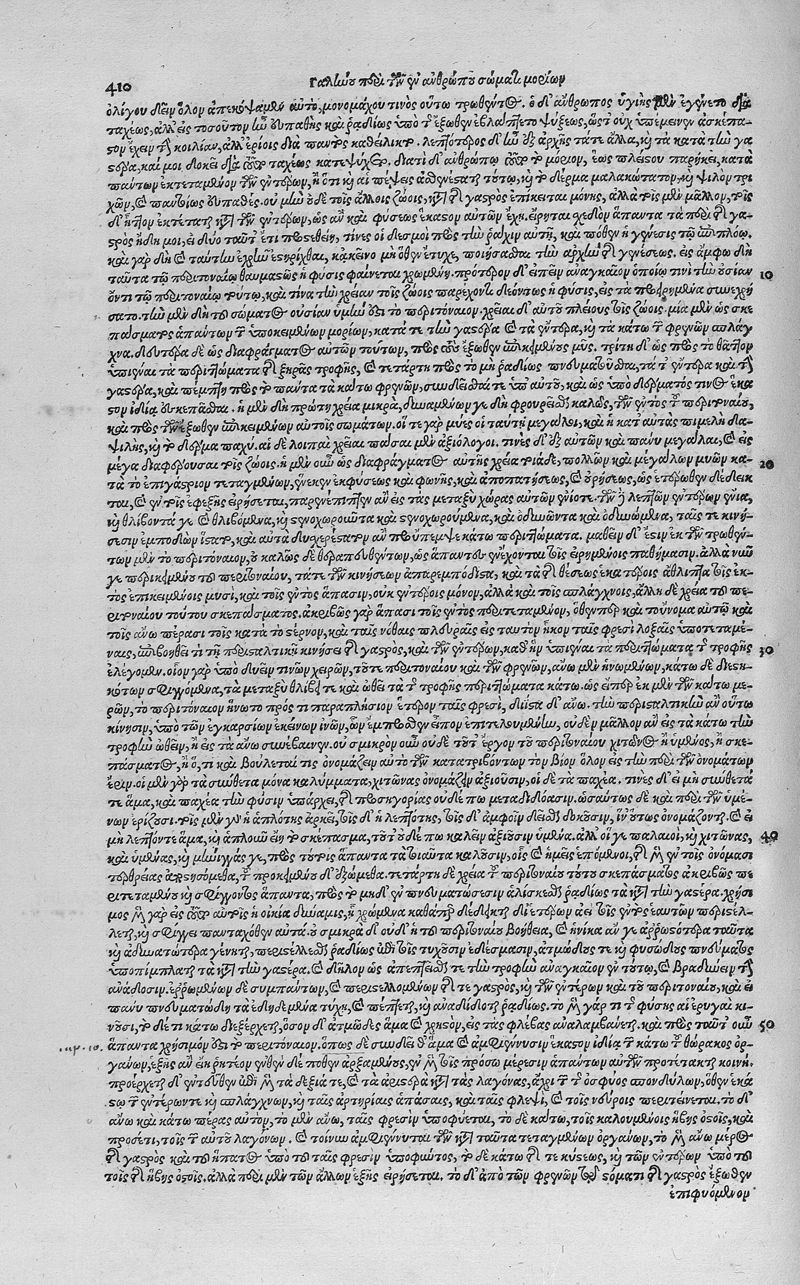 410
Γαληνοῦ περὶ τῶν ἐν ἀνθρώπου σώματι μορίων
ὀλίγου δεῖν ὅλον ἀπεκόψαμεν αὐτό, μονομάχου τινὸς οὕτω τρωθέντος. ὁ δ' ἄνθρωπος ὑγιὴς μὲν ἐγένετο διὰ
ταχέων, ἀλλ' εἰς τοσοῦτον ἦν δυσπαθὴς καὶ ῥᾳδίως ὑπὸ τῶν ἔξωθεν ἐβλάπτετο ψύξεως, ὥστ' οὐχ ὑπέμεινεν ἀσκέπα-
στον ἔχειν τὴν κοιλίαν, ἀλλ' ἐρίοις διὰ παντὸς καθειλίττετο. λεπτότερος δ' ἦν ἐξ ἀρχῆς τά τε ἄλλα, καὶ τὰ κατὰ τὴν γα-
στέρα, καί μοι δοκεῖ διὰ τοῦτο ταχέως κατεψύχετο. διατί δ' ἀνθρώπῳ τοῦτο τὸ μόριον, ἕως πλείστου παρήκει, κατὰ
πάντων ἐκτεταμένον τῶν ἐντέρων, ἢ ὅτι καὶ αἱ πέψεις ἀσθενέσταται τούτῳ, καὶ τὸ δέρμα μαλακώτατον, καὶ ψιλὸν τρι-
χῶν, καὶ παντοίως δυσπαθές. οὐ μὴν οὐδὲ τοῖς ἄλλοις ζώοις, κατὰ τῆς γαστρὸς ἐπίκειται μόνης, ἀλλὰ τοῖς μὲν μᾶλλον, τοῖς
δ' ἧττον ἐκτέταται κατὰ τῶν ἐντέρων, ὡς ἂν καὶ φύσεως ἕκαστον αὐτῶν ἔχῃ. εἴρηται σχεδὸν ἅπαντα τὰ περὶ τῆς γα-
στρὸς ἤδη μοι, εἰ δύο ταῦτ' ἔτι προστεθείη, τίνες οἱ δεσμοὶ πρὸς τὴν ῥάχιν αὐτῇ, καὶ πόθεν ἡ γένεσις τῷ ἐπιπλόῳ.
καὶ γὰρ δὴ καὶ ταύτην ἐχρῆν ἐστηρίχθαι, κἀκεῖνο μὴ ὅθεν ἔτυχε, ποιήσασθαι τὴν ἀρχὴν τῆς γενέσεως. εἰς ἄμφω δὴ
ταῦτα τῷ περιτοναίῳ θαυμαστῶς ἡ φύσις φαίνεται χρωμένη. πρότερον δ' εἰπεῖν ἀναγκαῖον ὁποίῳ τινὶ τὴν οὐσίαν
10
ὄντι τῷ περιτοναίῳ τούτῳ, καὶ τίνα τὴν χρείαν τοῖς ζώοις παρέχοντι δεόντως ἡ φύσις, εἰς τὰ προειρημένα συνεχρή-
σατο. τὴν μὲν δὴ τοῦ σώματος οὐσίαν ὑμήν ἐστι τὸ περιτόναιον. χρεῖαι δ' αὐτοῦ πλείους τοῖς ζώοις. μία μὲν ὡς σκε-
πάσματος ἁπάντων τῶν ὑποκειμένων μορίων, κατά τε τὴν γαστέρα καὶ τὰ ἔντερα, καὶ τὰ κάτω τῶν φρενῶν σπλάγ-
χνα. δευτέρα δὲ ὡς διαφράγματος αὐτῶν τούτων, πρὸς τοὺς ἔξωθεν ἐπικειμένους μῦς. τρίτη δ' ὡς πρὸς τὸ θᾶττον
ὑπιέναι τὰ περιττώματα τῆς ξηρᾶς τροφῆς, καὶ τετάρτη πρὸς τὸ μὴ ῥᾳδίως πνευματοῦσθαι, τά τ' ἔντερα καὶ τὴν
γαστέρα, καὶ πέμπτη πρὸς τὸ πάντα τὰ κάτω φρενῶν, συνδεῖσθαί τε ὑπ' αὐτοῦ, καὶ ὡς ὑπὸ δέρματός τινος ἕκα-
στον ἰδίᾳ σκέπεσθαι. ἡ μὲν δὴ πρώτη χρεία μικρὰ, δυναμένων γε δὴ φρουρεῖσθαι καλῶς, τῶν ἐντὸς τοῦ περιτοναίου,
καὶ πρὸς τῶν ἔξωθεν ἐπικειμένων αὐτοῖς σωμάτων. οἵ τε γὰρ μύες οἱ ταύτῃ μεγάλοι, καὶ ἡ κατ' αὐτὰς πιμελὴ δα-
ψιλὴς, καὶ τὸ δέρμα παχύ. αἱ δὲ λοιπαὶ χρεῖαι πᾶσαι μὲν ἀξιόλογοι. τινὲς δ' ἐξ αὐτῶν καὶ πάνυ μεγάλαι, καὶ εἰς
μέγα διαφέρουσαι τοῖς ζώοις. ἡ μὲν οὖν ὡς διαφράγματος αὐτῆς χρεία τοιάδε, πολλῶν καὶ μεγάλων μυῶν κα-
20
τὰ τὸ ἐπιγάστριον τεταγμένων, ἕνεκεν ἐκφύσεως καὶ φωνῆς, καὶ ἀποπατήσεως, καὶ οὐρήσεως, ὡς ἑτέρωθεν δέδεικ-
ται, καὶ ἐν τοῖς ἐφεξῆς εἰρήσεται, παρενέπιπτεν ἂν εἰς τὰς μεταξὺ χώρας αὐτῶν ἐνίοτε τῶν λεπτῶν ἐντέρων ἔνια,
καὶ θλίβοντά γε καὶ θλιβόμενα, καὶ στενοχωροῦντα καὶ στενοχωρούμενα, καὶ ὀδυνῶντα καὶ ὀδυνώμενα, ταῖς τε κινή-
σεσιν ἐμποδὼν ἵστατο, καὶ αὐτὰ δυσχερέστερον ἂν προὔπεμψε κάτω περιττώματα. μαθεῖν δ' ἔστιν ἐκ τῶν τρωθέν-
των μὲν τὸ περιτόναιον, οὐ καλῶς δὲ θεραπευθέντων, ὡς ἁπάντων ἐνέχονται τοῖς εἰρημένοις παθήμασιν. ἀλλὰ νῦν
γε περικειμένου τοῦ περιτοναίου, τά τε τῶν κινήσεων ἀπαρεμπόδιστα, καὶ τὰ τῆς θέσεως ἑκατέροις ἄθλιπτα τοῖς ἐκ-
τὸς ἐπικειμένοις μυσὶ, καὶ τοῖς ἐντὸς ἅπασιν, οὐκ ἐντέροις μόνον, ἀλλὰ καὶ τοῖς σπλάγχνοις, ἄλλη δὲ χρεία τοῦ πε-
ριτοναίου τούτου σκεπάσματος. ἀκριβῶς γὰρ ἅπασι τοῖς ἐντὸς περιτεταμένον, ὅθεν περ καὶ τοὔνομα αὐτῷ καὶ
τοῖς ἄνω πέρασι τοῖς κατὰ τὸ στέρνον, καὶ ταῖς νόθαις πλευραῖς εἰς ταυτὸν ἧκον ταῖς φρεσὶ λοξαῖς ὑποτεταμέ-
ναις, ἐπιβοηθεῖ τῇ περισταλτικῇ κινήσει τῆς γαστρὸς, καὶ τῶν ἐντέρων, καθ' ἣν ὑπιέναι τὰ περιττώματα τῆς τροφῆς
30
ἐλέγομεν. οἷον γὰρ ὑπὸ δυεῖν τινῶν χειρῶν, τοῦ τε περιτοναίου καὶ τῶν φρενῶν, ἄνω μὲν ἡνωμένων, κάτω δὲ διεστη-
κότων σφιγγόμενα, τὰ μεταξὺ θλίβει τε καὶ ὠθεῖ τὰ τῆς τροφῆς περιττώματα κάτω. ὡς εἴπερ ἐκ μὲν τῶν κάτω με-
ρῶν, τὸ περιτόναιον ἥνωτο πρός τι παραπλήσιον ἕτερον ταῖς φρεσὶ, διΐστατο δ' ἄνω. τὴν περισταλτικὴν ἂν οὕτω
κίνησιν, ὑπὸ τῶν ἐγκαρσίων ἐκείνων ἰνῶν, ὧν ἔμπροσθεν εἶπον ἐπιτελουμένην, οὐδὲν μᾶλλον ἂν εἰς τὰ κάτω τὴν
τροφὴν ὠθεῖν, ἢ εἰς τὰ ἄνω συνέβαινεν. οὐ σμικρὸν οὖν οὐδὲ τοῦτ' ἔργον τοῦ περιτοναίου χιτῶνος ἢ ὑμένος, ἢ σκε-
πάσματος, ἢ ὅ, τι καὶ βούλεταί τις ὀνομάζειν αὐτὸ τῶν κατατριβόντων τὸν βίον ὅλον εἰς τὴν περὶ τῶν ὀνομάτων
ἔριν. οἱ μὲν γὰρ τὰ σύνθετα μόνα καλύμματα, χιτῶνας ὀνομάζειν ἀξιοῦσιν, οἱ δὲ τὰ παχέα. τινὲς δ' εἰ μὴ σύνθετά
τε ἅμα, καὶ παχέα τὴν φύσιν ὑπάρχει, τῆς προσηγορίας οὐδέπω μεταδιδόασιν. ὡσαύτως δὲ καὶ περὶ τῶν ὑμέ-
νων ἐρίζουσι. τοῖς μὲν γὰρ ἡ ἁπλότης ἀρκεῖ, τοῖς δ' ἡ λεπτότης, τοῖς δ' ἀμφοῖν δεῖσθαι δοκοῦσιν, ἵν' οὕτως ὀνομάζοντο. καὶ εἰ
μὴ λεπτόν τε ἅμα, καὶ ἁπλοῦν εἴη τὸ σκέπασμα, τοῦτ' οὐδέπω καλεῖν ἀξιοῦσιν ὑμένα. ἀλλ' οἵ γε παλαιοὶ, καὶ χιτῶνας,
40
καὶ ὑμένας, καὶ μήνιγγάς γε, πρὸς τούτοις ἅπαντα τὰ τοιαῦτα καλοῦσιν, οἷς καὶ ἡμεῖς ἑπόμενοι, τῆς μὲν ἐν τοῖς ὀνόμασι
τερθρείας ἀφεξόμεθα, τῶν προκειμένων δ' ἑξόμεθα. τετάρτη δὲ χρεία τοῦ περιτοναίου τούτου σκεπάσματος ἀκριβῶς πε-
ριτεταμένου καὶ σφίγγοντος ἅπαντα, πρὸς τὸ μηδ' ἐν πνευματώσεσιν ἁλίσκεσθαι ῥᾳδίως τὰ κατὰ τὴν γαστέρα. χρήσι-
μος μὲν γὰρ εἰς τοῦτο αὐτοῖς ἡ οἰκεία δύναμις, ᾗ χρώμενα καθάπερ δέδεικται δι' ἑτέρων ἀεὶ τοῖς ἐντὸς ἑαυτῶν περιστέλ-
λεται, καὶ σφίγγει πανταχόθεν αὐτά. οὐ σμικρὰ δ' οὐδ' ἡ τοῦ περιτοναίου βοήθεια, καὶ ἡνίκα ἄν γε ἀρρωστότερα ταῦτα
καὶ ἀδυνατώτερα γένηται, περιστέλλεσθαι ῥᾳδίως ἐπὶ τοῖς τυχοῦσιν ἐδέσμασιν, ἀτμώδους τε καὶ φυσώδους πνεύματος
ὑποπίμπλαται τὰ κατὰ τὴν γαστέρα. καὶ δῆλον ὡς ἀπεπτεῖσθαί τε τὴν τροφὴν ἀναγκαῖον ἐν τούτῳ, καὶ βραδύνειν τὴν
ἀνάδοσιν. ἐρρωμένων δὲ συμπάντων, καὶ περιστελλομένων τῆς τε γαστρὸς, καὶ τῶν ἐντέρων καὶ τοῦ περιτοναίου, κἂν εἰ
πάνυ πνευματώδη τὰ ἐδηδεσμένα τύχῃ, καὶ πέπτεται, καὶ ἀναδίδοται ῥᾳδίως. τὸ μὲν γάρ τι τῆς φύσης αἱ ἐρυγαὶ κι-
νοῦσι, τὸ δέ τι κάτω διεξέρχεται, ὅσον δ' ἀτμῶδες ἅμα καὶ χρηστὸν, εἰς τὰς φλέβας ἀναλαμβάνεται. καὶ πρὸς ταῦτ' οὖν
50
ἅπαντα χρήσιμόν ἐστι τὸ περιτόναιον. ὅπως δὲ συνδεῖ θ' ἅμα καὶ ἀμφιέννυσιν ἕκαστον ἰδίᾳ τῶν κάτω τοῦ θώρακος ὀρ-
γάνων, ἑξῆς ἂν εἴη ῥητέον ἐνθένδέ ποθεν ἀρξαμένους, ἐν μὲν τοῖς πρόσω μέρεσιν ἁπάντων αὐτῶν προτέτακται κοινῇ.
προέρχεται δ' ἐντεῦθεν ἐπὶ μὲν τὰ δεξιά τε, καὶ τὰ ἀριστερὰ κατὰ τὰς λαγόνας, ἄχρι τῶν τῆς ὀσφύος σπονδύλων, ὅθεν ἑκά-
στῳ τῶν ἐντέρων τε καὶ σπλάγχνων, καὶ ταῖς ἀρτηρίαις ἁπάσαις, καὶ ταῖς φλεψὶ, καὶ τοῖς νεύροις περιτείνεται. τὸ δ'
ἄνω καὶ κάτω πέρας αὐτοῦ, τὸ μὲν ἄνω, ταῖς φρεσὶν ὑποφύεται, τὸ δὲ κάτω, τοῖς καλουμένοις ἥβης ὀστοῖς, καὶ
προσέτι, τοῖς τῶν αὐτῶν λαγόνων. καὶ τοίνυν ἀμφιέννυται τῶν κατὰ ταῦτα τεταγμένων ὀργάνων, τὸ μὲν ἄνω μέρος
τῆς γαστρὸς καὶ τοῦ ἥπατος ὑπὸ τοῦ ταῖς φρεσὶν ὑποφύντος, τὸ δὲ κάτω τῆς τε κύστεως, καὶ τῶν ἐντέρων ὑπὸ τοῦ
τοῖς τῆς ἥβης ὀστοῖς. ἀλλὰ περὶ μὲν τῶν ἄλλων ἑξῆς εἰρήσεται. τὸ δ' ἀπὸ τῶν φρενῶν τῷ στόματι τῆς γαστρὸς ἔξωθεν
ἐπιφυόμενον